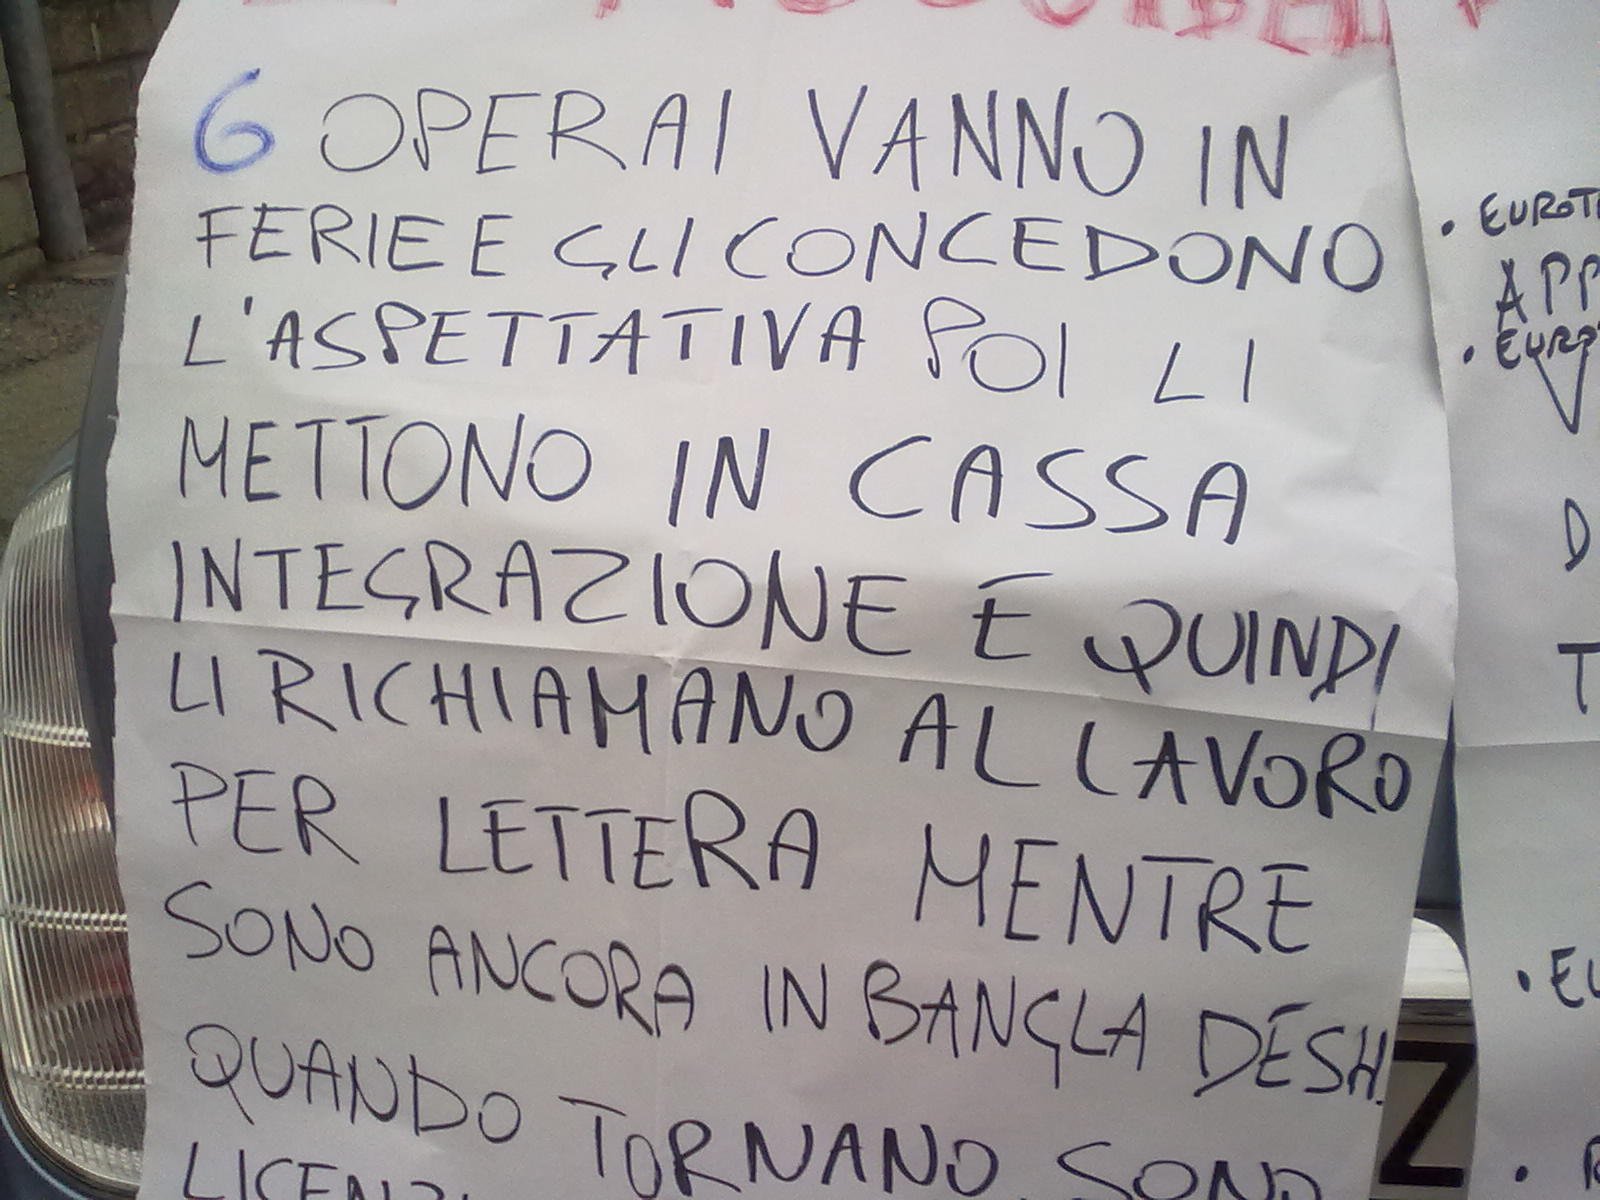 6 OPERAI VANNO IN
FERIE E GLI CONCEDONO
L'ASPETTATIVA POI LI
METTONO IN CASSA
INTEGRAZIONE E QUINDI
LI RICHIAMANO AL LAVORO
PER LETTERA MENTRE
SONO ANCORA IN BANGLA DESH.
QUANDO TORNANO SONO
• EUROT
APP
• EURO
D
T
• EU
Z